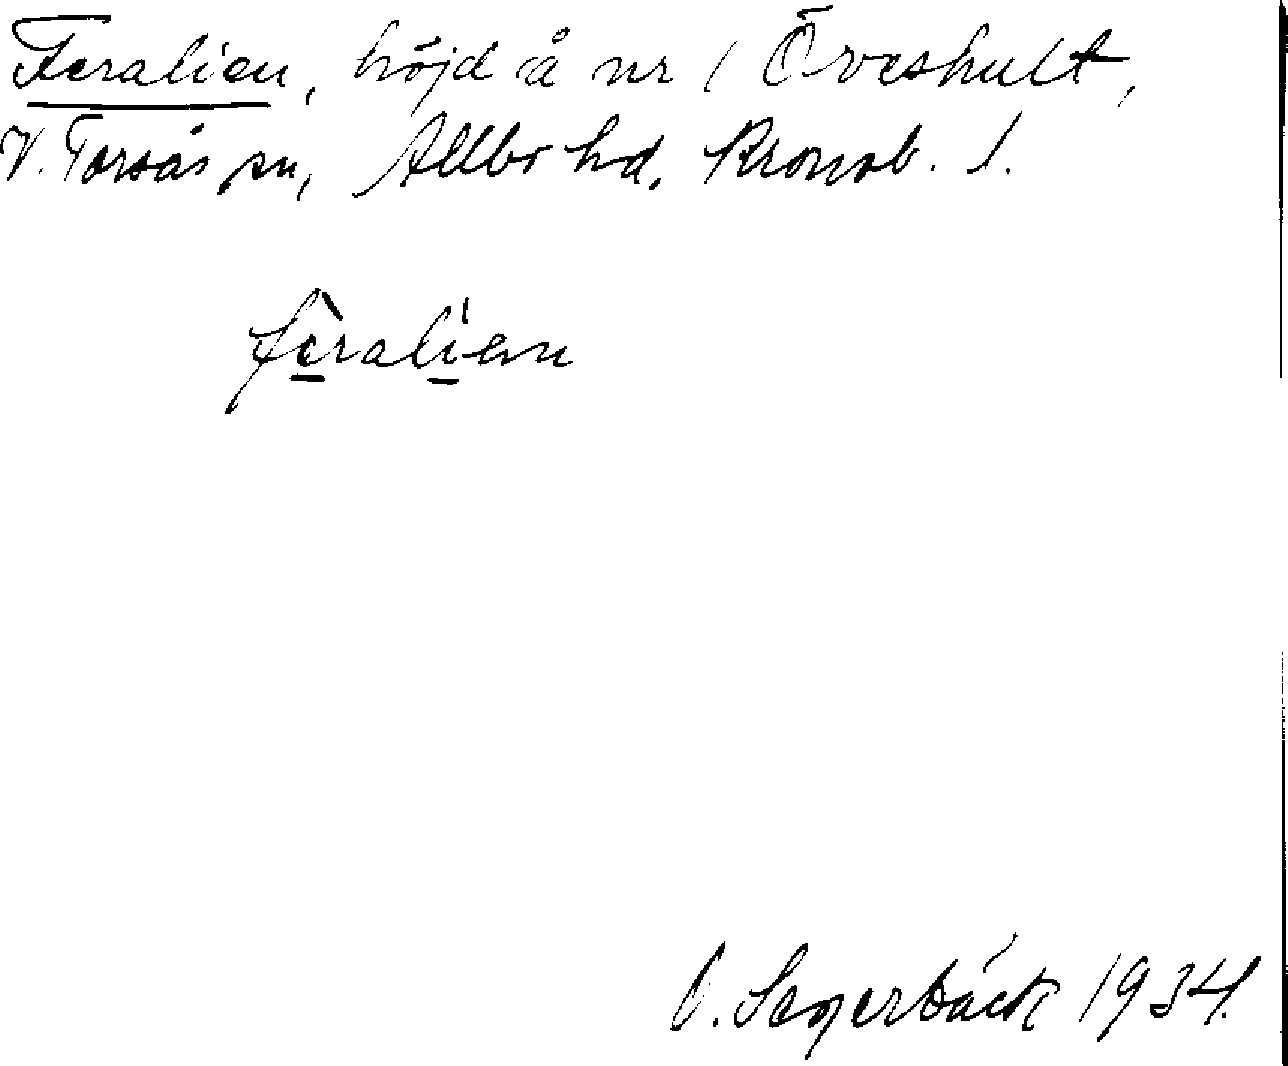 Feralien, höjd å nr 1 Öveshult,
V. Torsås sn, Allbo hd. Kronob. l.
fèralíen
O. Segerbäck 1934.